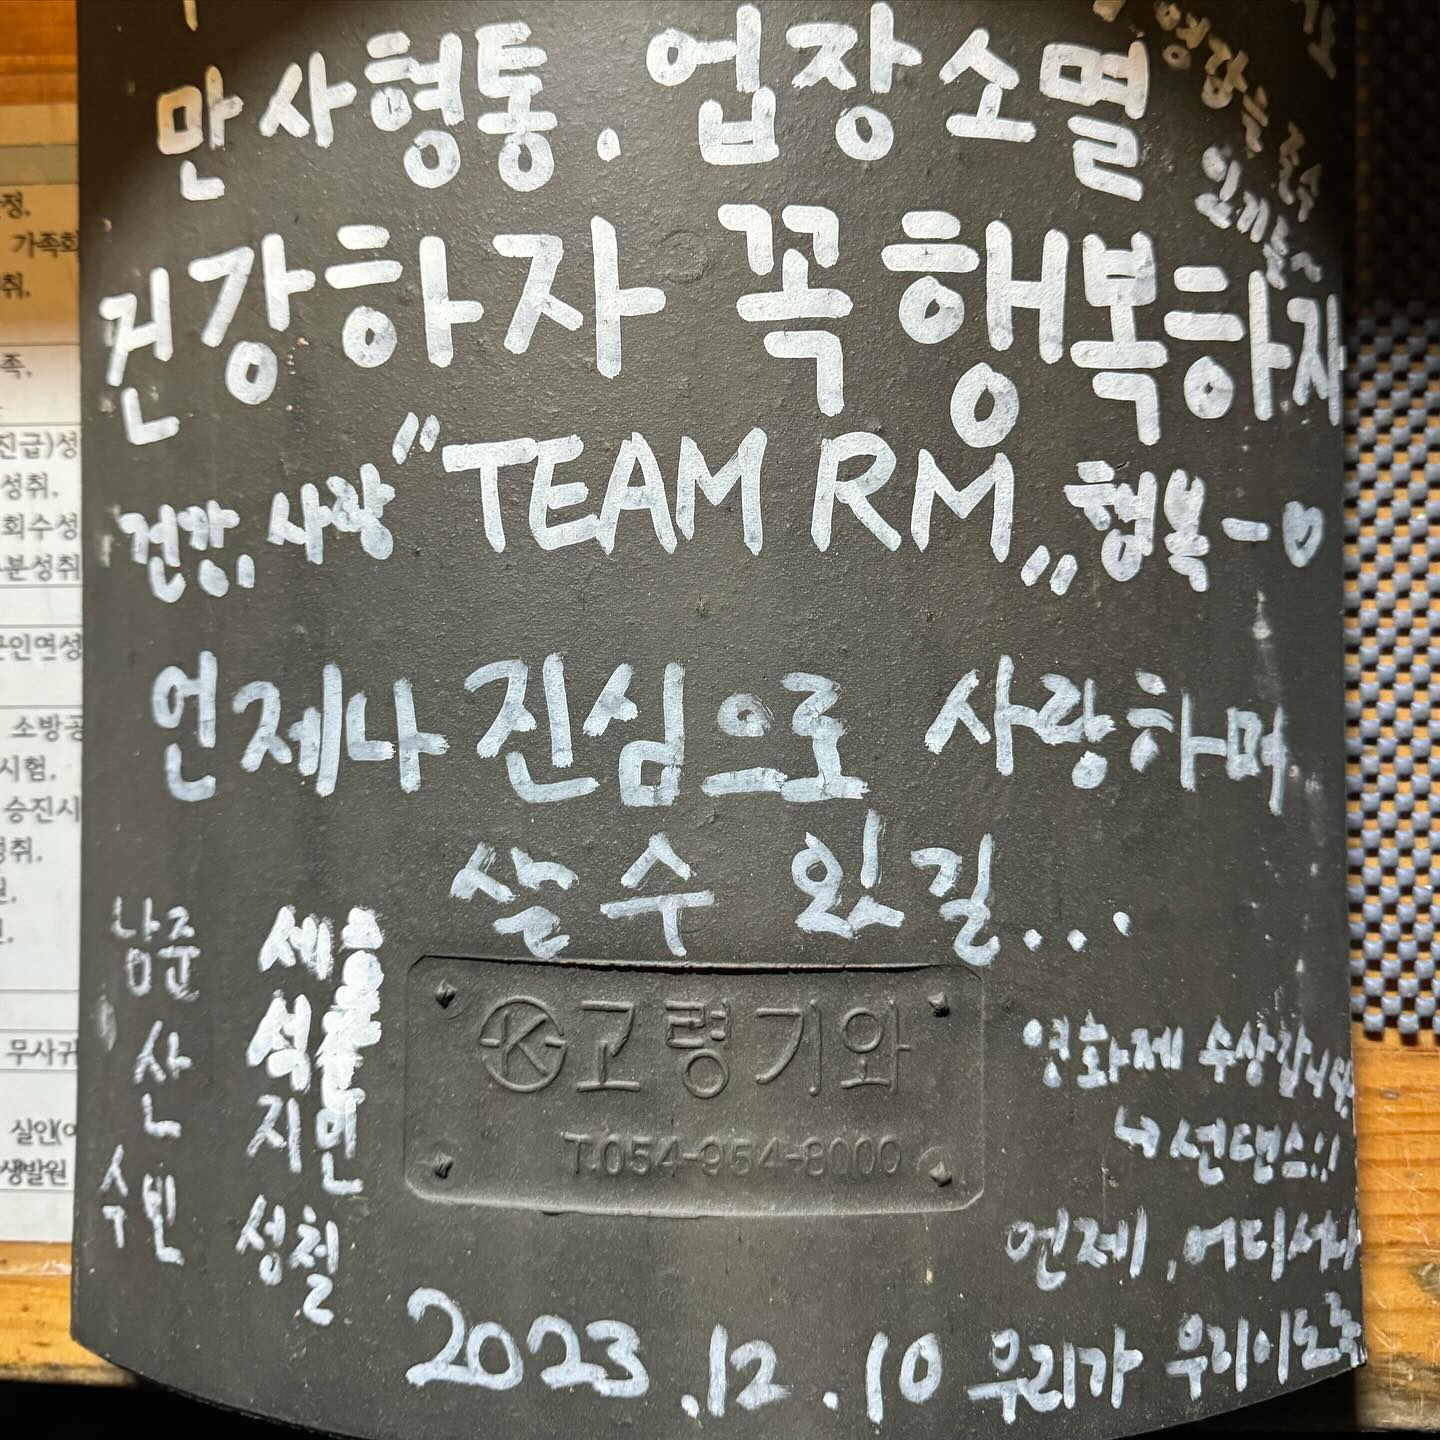 만사형통. 업장소멸
건강하자 꼭 행복하자
건강, 사랑 "TEAM RM" 행복-♡
언제나 진심으로 사랑하며
살 수 있길...
남준
산
수빈
세
석
지인
성철
고령기와
T.054-954-8000
영화제 수상갑니다
↳ 선댄스!!
언제, 어디서나
우리가 우리이도록
2023.12.10
정,
가족화
취,
족,
진급)성
성취,
회수성
분성취
인연성
소방공
시험,
승진시
취,
무사귀
생발원